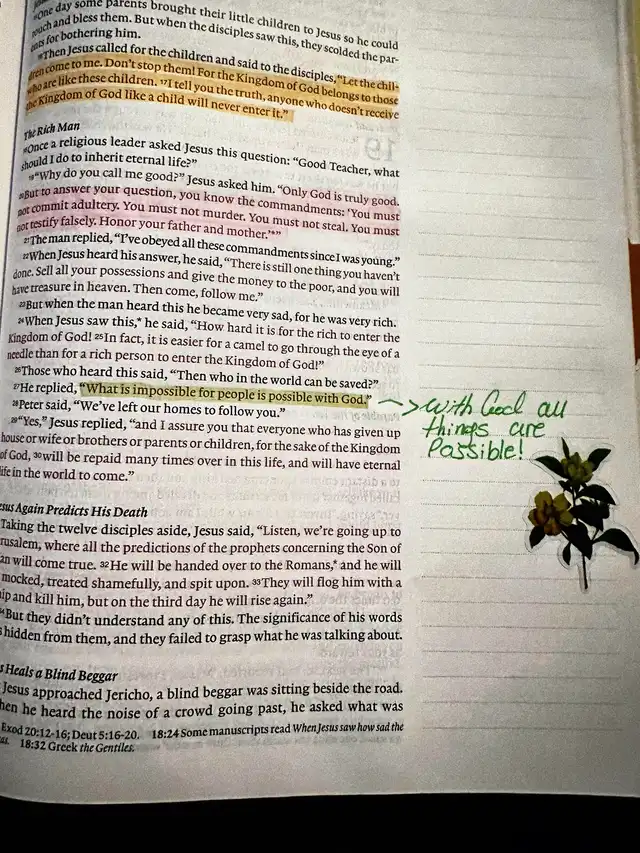 "One day some parents brought their little children to Jesus so he could
touch and bless them. But when the disciples saw this, they scolded the par-
ents for bothering him.
Then Jesus called for the children and said to the disciples, "Let the chil-
dren come to me. Don't stop them! For the Kingdom of God belongs to those
who are like these children. 17I tell you the truth, anyone who doesn't receive
the Kingdom of God like a child will never enter it."
The Rich Man
18Once a religious leader asked Jesus this question: "Good Teacher, what
should I do to inherit eternal life?"
19"Why do you call me good?" Jesus asked him. "Only God is truly good.
20But to answer your question, you know the commandments: 'You must
not commit adultery. You must not murder. You must not steal. You must
not testify falsely. Honor your father and mother.'*"
21The man replied, "I've obeyed all these commandments since I was young."
22When Jesus heard his answer, he said, "There is still one thing you haven't
done. Sell all your possessions and give the money to the poor, and you will
have treasure in heaven. Then come, follow me."
23But when the man heard this he became very sad, for he was very rich.
24When Jesus saw this,* he said, "How hard it is for the rich to enter the
Kingdom of God! 25In fact, it is easier for a camel to go through the eye of a
needle than for a rich person to enter the Kingdom of God!"
26Those who heard this said, "Then who in the world can be saved?"
27He replied, "What is impossible for people is possible with God."
With God all
things are
Possible!
28Peter said, "We've left our homes to follow you."
29"Yes," Jesus replied, "and I assure you that everyone who has given up
house or wife or brothers or parents or children, for the sake of the Kingdom
of God, 30will be repaid many times over in this life, and will have eternal
life in the world to come."
esus Again Predicts His Death
Taking the twelve disciples aside, Jesus said, "Listen, we're going up to
rusalem, where all the predictions of the prophets concerning the Son of
an will come true. 32He will be handed over to the Romans,* and he will
mocked, treated shamefully, and spit upon. 33They will flog him with a
ip and kill him, but on the third day he will rise again."
34But they didn't understand any of this. The significance of his words
s hidden from them, and they failed to grasp what he was talking about.
s Heals a Blind Beggar
Jesus approached Jericho, a blind beggar was sitting beside the road.
hen he heard the noise of a crowd going past, he asked what was
Exod 20:12-16; Deut 5:16-20. 18:24 Some manuscripts read When Jesus saw how sad the
as. 18:32 Greek the Gentiles.